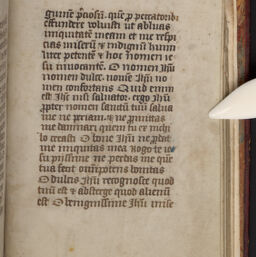 guine p̄ciosū. que ꝓ peccatorib;
effundere voluisti ut abluas
iniquitatē meam et me respi
cias miserū & indignū humi
liter petentē & hoc nomen ie
su invocantē. O nomen ihū
nomen dulce. nomē ihū no
men confortans Quid enim
est ihc nisi salvator. ergo ihū
ꝓpter nomen sanctū tuū salva
me ne peream. & ne ꝑmittas
me damnari quem tu ex nichi
lo creasti O bone ihū ne ꝑdat
me iniquitas mea Rogo te ie
su piissime ne perdas me que
tua fecit omīpotens bonitas
O dulcis ihū recognosce quod
tuū est & absterge quod alienū
est O benignissime ihū mise